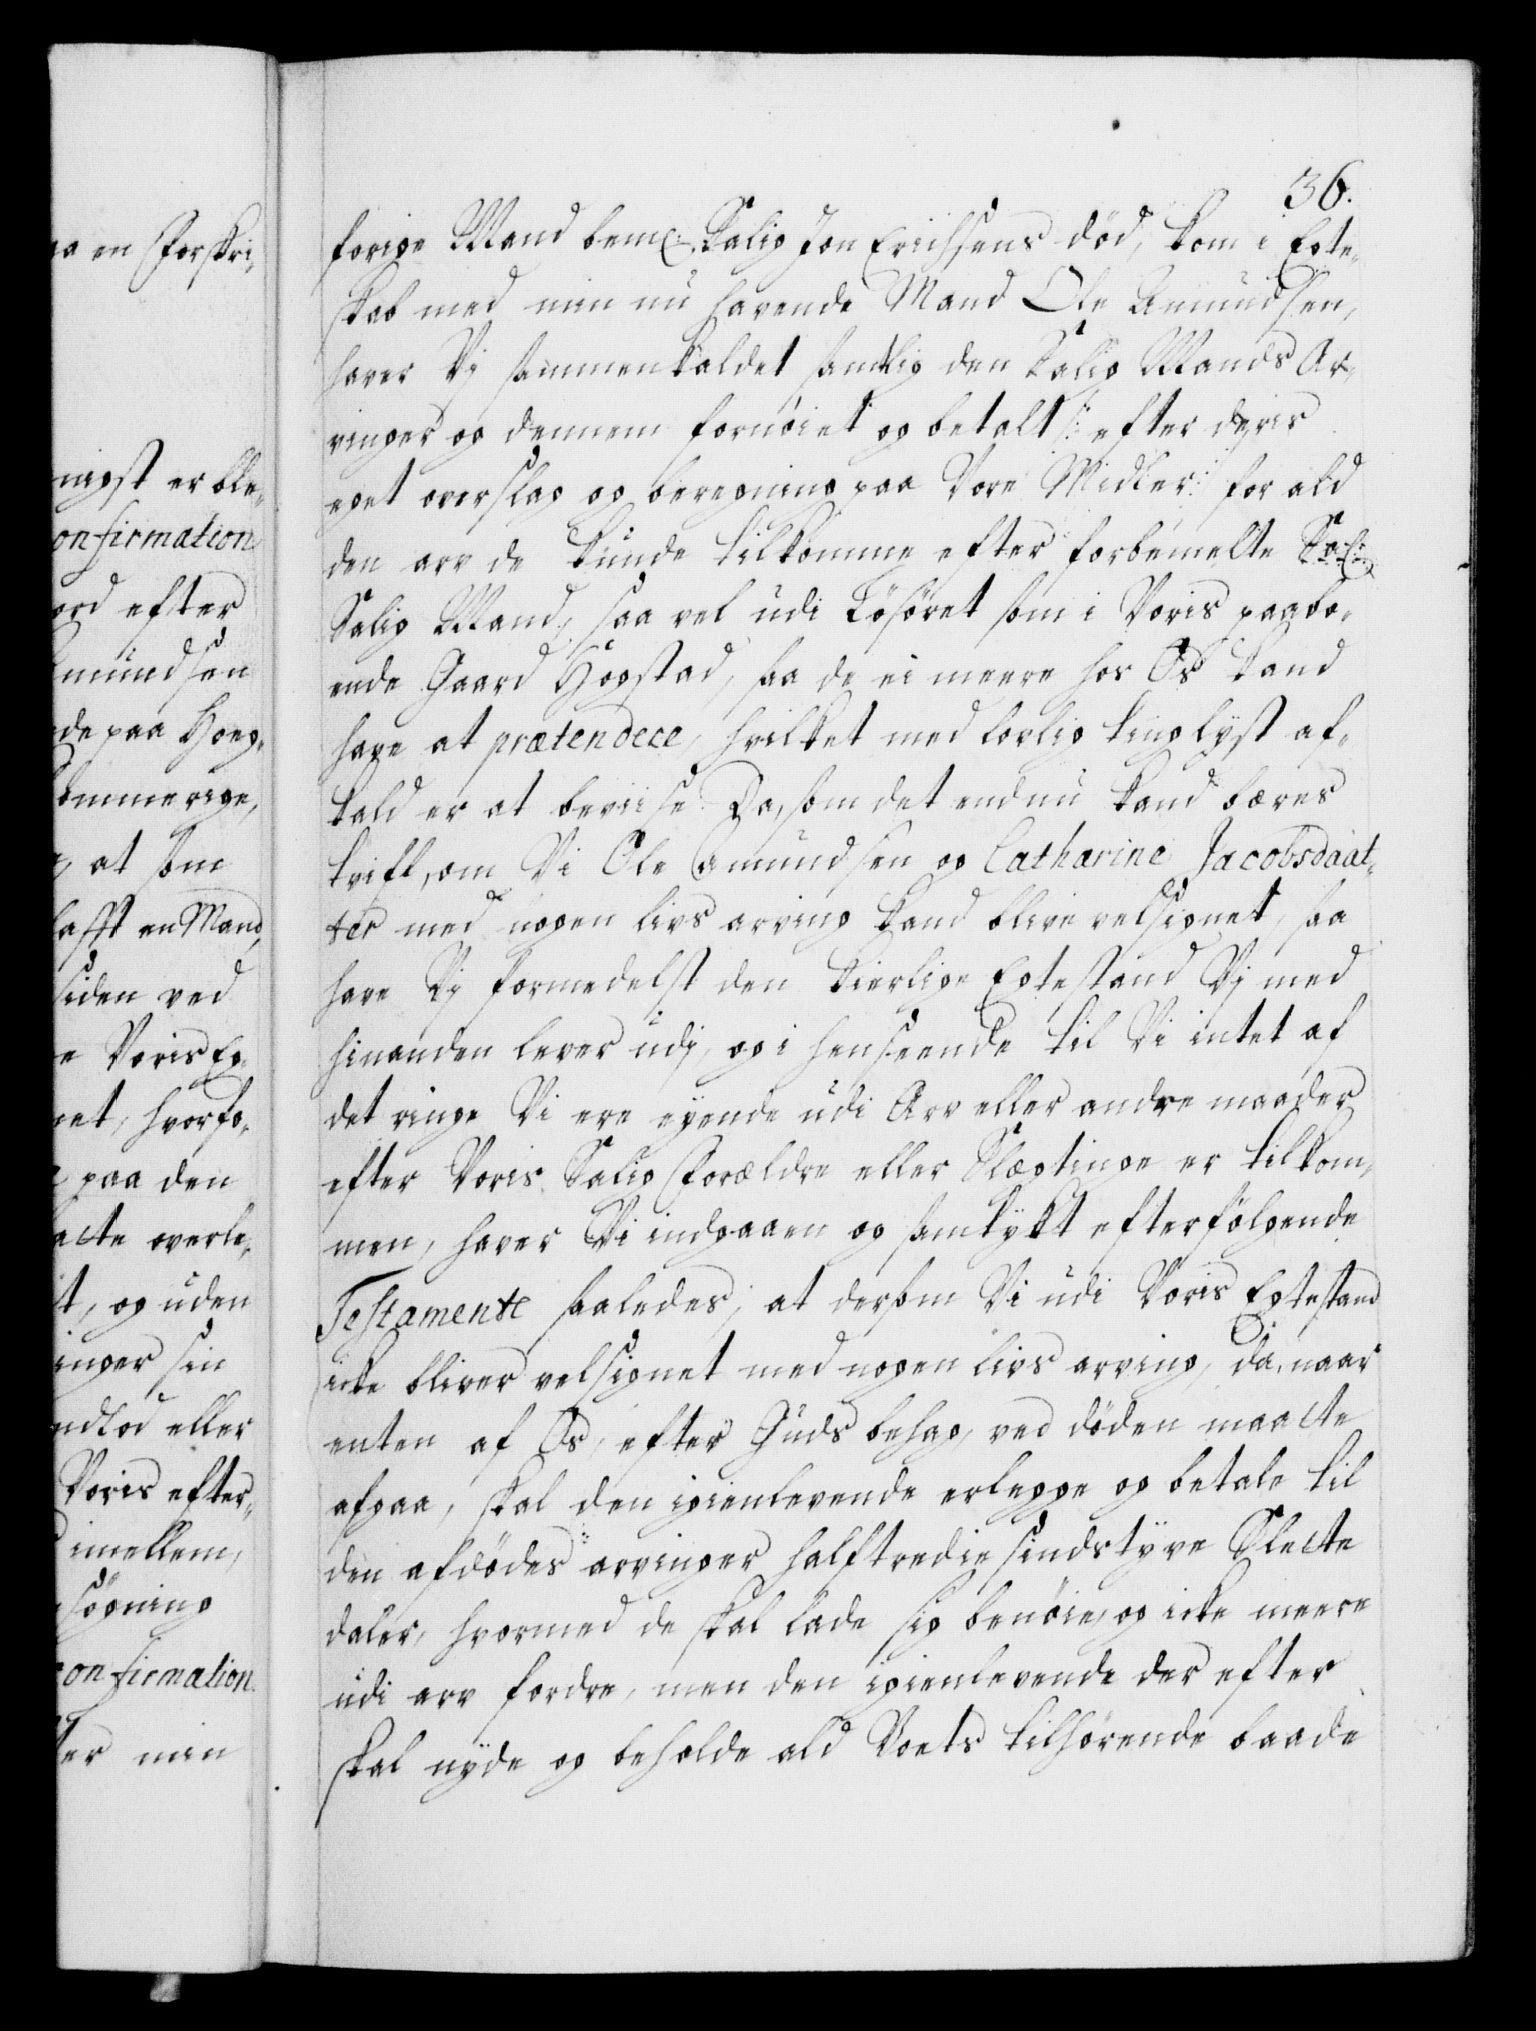 36.
forige Mand bem: Salig Jon Erichsens död, kom i Egte-
skab med min nu havende Mand Ole Amundsen,
haver Vj sammenkaldet samtlig den Salig Mands Ar-
vinger og dennem fornöiet og betalt /: efter deris
eget overslag og beregning paa Vore Midler :/ for ald
den arv de kunde tilkomme efter forbemelte Sal:
Salig Mand, saa vel udi Lösöret som i Voris paabo-
ende Gaard Hogstad, saa de ei meere hos Os kand
have at prætendere, hvilket med lovlig tinglyst af-
kald er at beviise. Da, som det endnu kand bæres
tvifl, om Vi Ole Amundsen og Catharine Jacobsdaat-
ter med nogen livs arving kand blive velsignet, saa
have Vj formedelst den kierlige Egtestand Vj med
hinanden lever udj, og i henseende til Vi intet af
det ringe Vi ere eyende udi Arv eller andre maader
efter Voris Salig Forældre eller Slegtinge er tilkom-
men, haver Vi indgaaen og samtykt efterfölgende
Testamente saaledes, at dersom Vi udi Voris Egtestand
icke bliver velsignet med nogen livs arving, da, naar
enten af Os, efter Guds behag, ved döden maatte
afgaa, skal den igienlevende erlegge og betale til
den afdödes arvinger halftredie sindstyve Slette
daler, hvormed de skal lade sig benöie, og icke meere
udi arv fordre, men den igienlevende der efter
skal nyde og beholde ald Boets tilhörende baade
aa en Forskri-
nigst er ble-
onfirmation
ord efter
mundsen
de paa Hog-
ommerige,
, at som
afft en Mand,
siden ved
e Voris Eg-
net, hvorfo-
paa den
atte overle-
t, og uden
inger sin
ndlod eller
Voris efter-
imellem,
sögning
onfirmation.
ter min